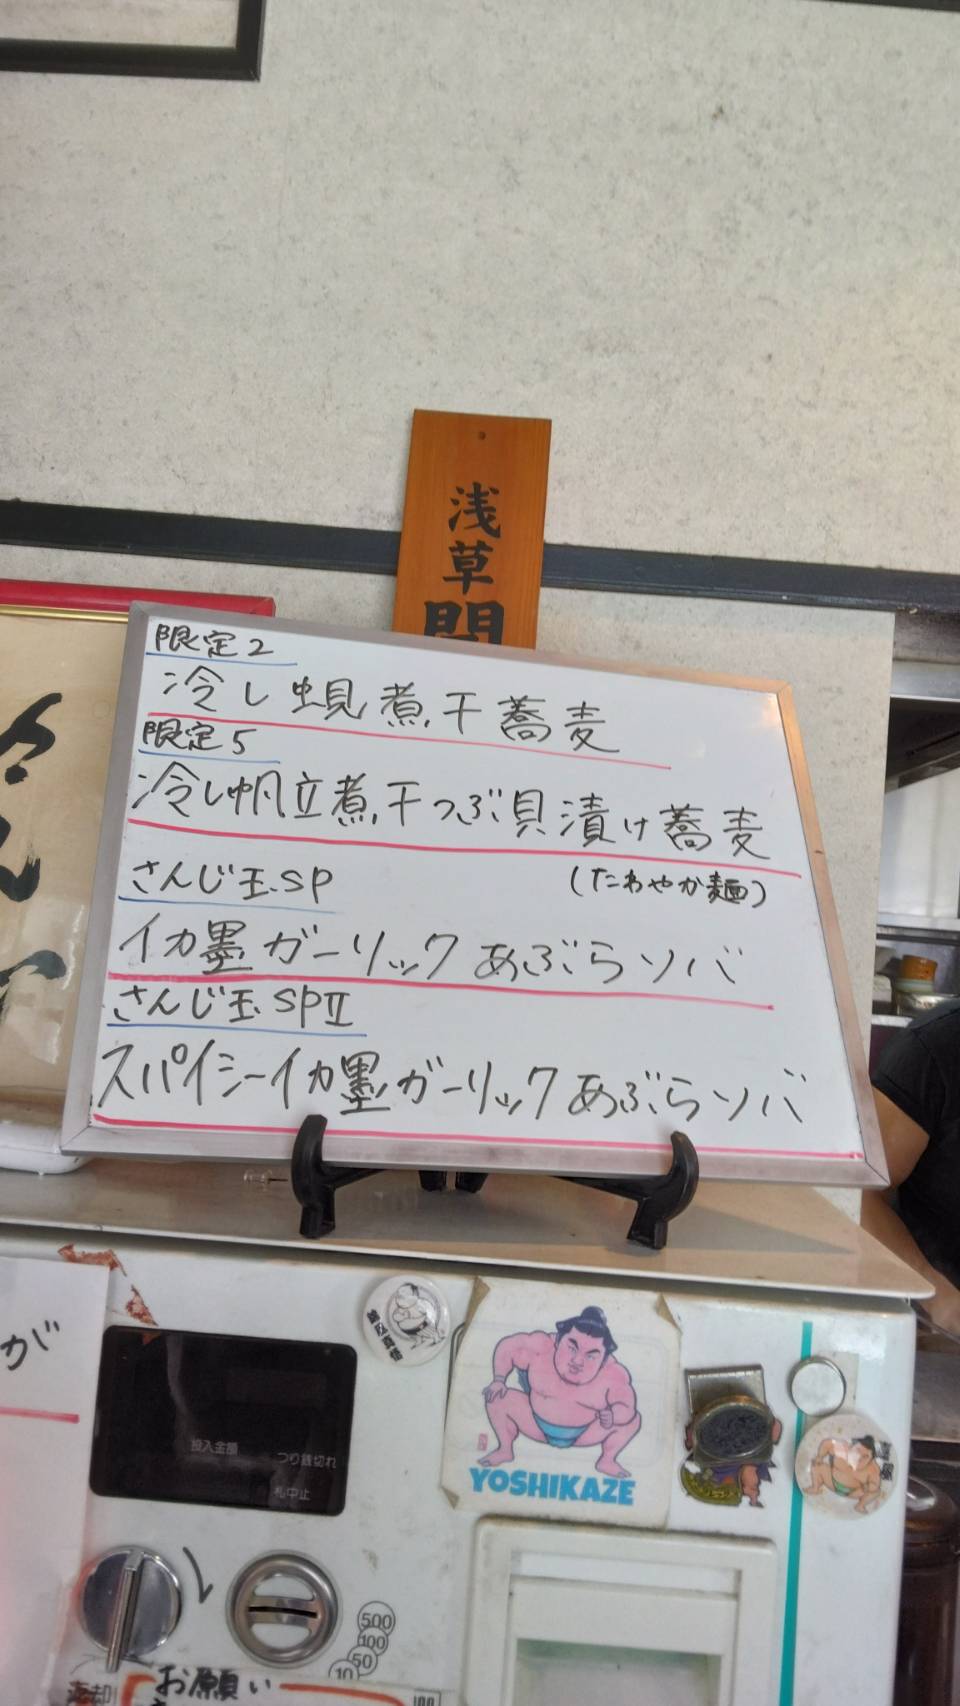 浅草開
限定2
冷し蜆煮干蕎麦
限定5
冷し帆立煮干つぶ貝漬け蕎麦
(たわやか麺)
さんじ玉SP
イカ墨ガーリックあぶらソバ
さんじ玉SPⅡ
スパイシーイカ墨ガーリックあぶらソバ
が
投入金額
つり銭切れ
札中止
YOSHIKAZE
嘉風
500
100
50
10
返却
お願い
100